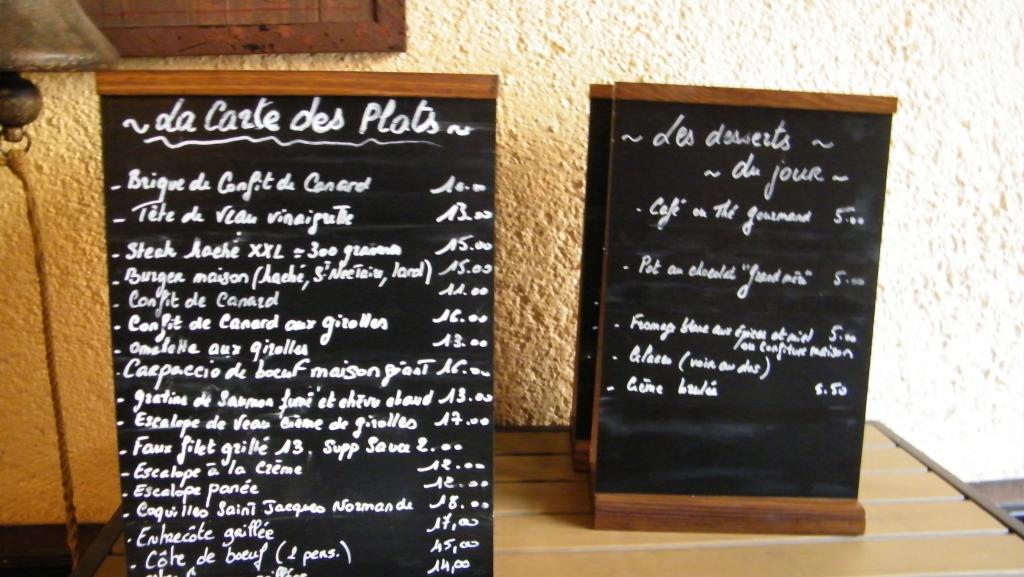 ~ La Carte des Plats ~
- Brique de Confit de Canard
- Tête de Veau vinaigrette 13.00
- Steak haché XXL = 300 grammes 15.00
- Burger maison (haché, St Nectaire, lard) 15.00
- Confit de Canard
- Confit de Canard aux girolles 16.00
- Omelette aux girolles 13.00
- Carpaccio de boeuf maison géant 16.00
- gratins de Saumon fumé et chèvre chaud 13.00
- Escalope de Veau Crème de girolles 17.00
- Faux filet grillé 13. Supp Sauce 2.00
- Escalope à la Crème 12.00
- Escalope panée 12.00
- Coquilles Saint Jacques Normande 18.00
- Entrecôte grillée 17,00
- Côte de boeuf (2 pers.) 45,00
14,00
~ Les desserts ~
~ du jour ~
- Café ou Thé gourmand 5.00
- Pot au chocolat "Grand mère" 5.00
- Fromage blanc aux épices et miel 5.00
ou confiture maison
- Glaces (voir au dos)
- Crème brulée 5.50